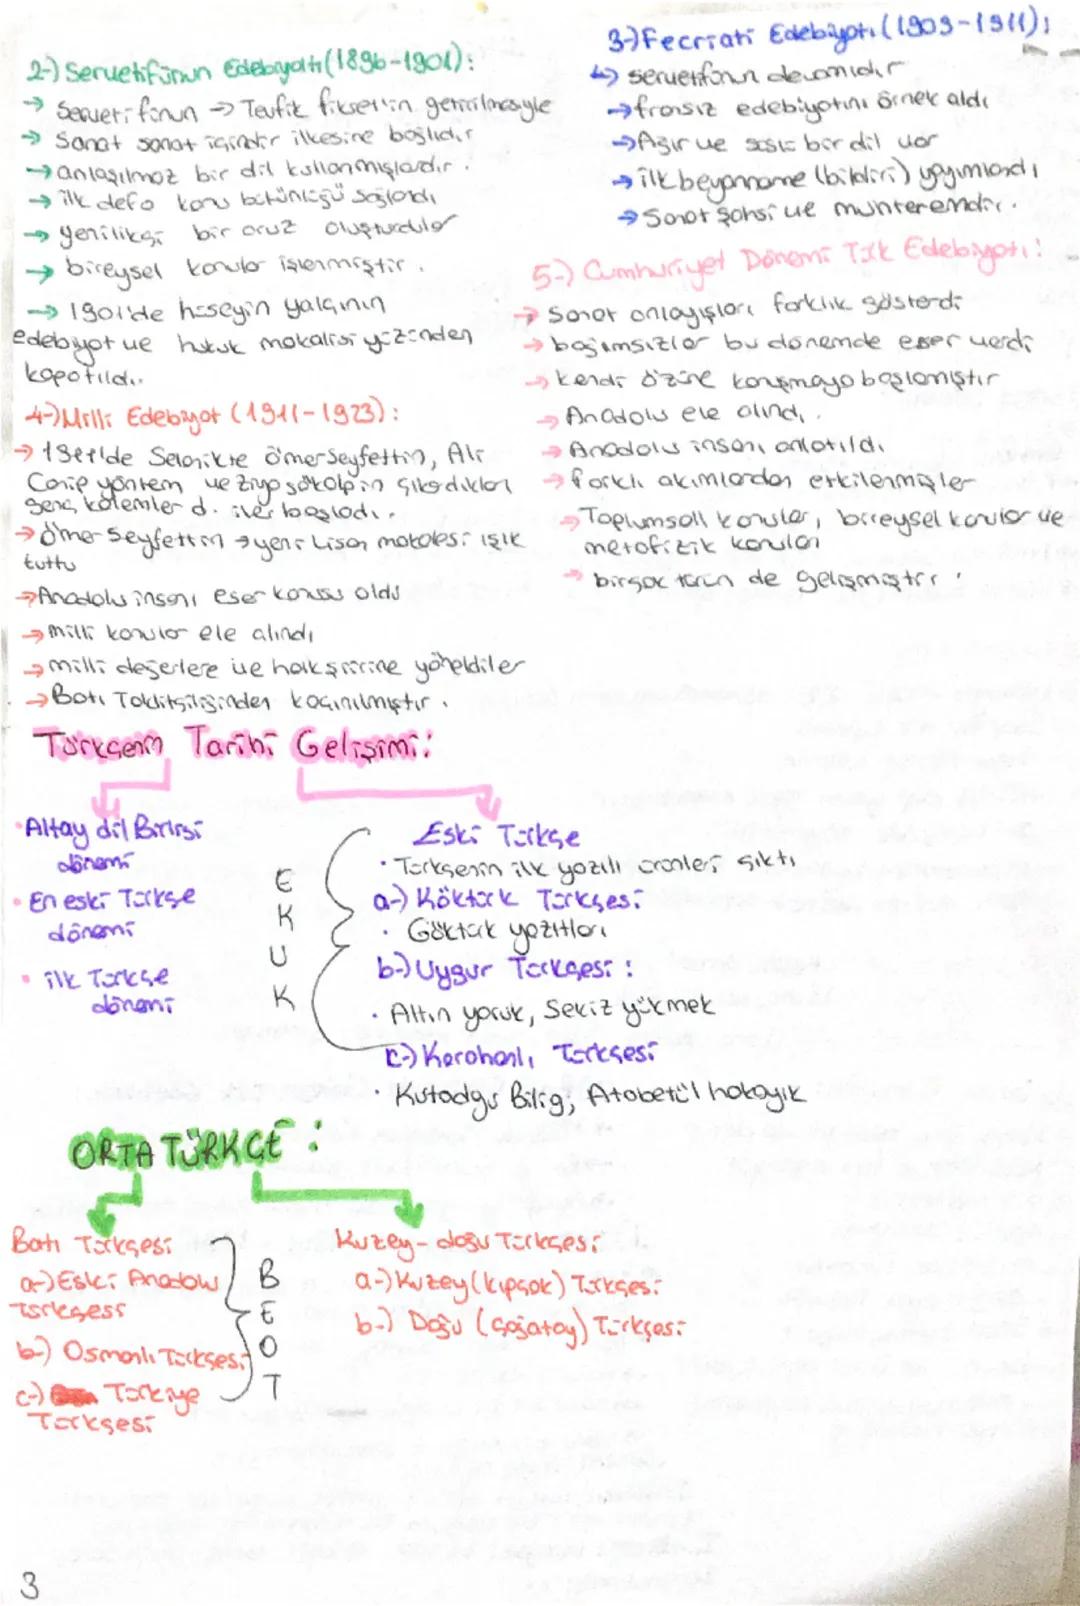 2-) Servetifünun Edebiyatı (1896-1901):
→ Servetifünun → Tevfik fikret'in getirilmesiyle
→ Sanat sanat içindir ilkesine bağlıdır
→ anlaşılmaz bir dil kullanmışlardır.
→ ilk defa konu bütünlüğü sağlandı
→ yenilikçi bir aruz oluşturdular
→ bireysel konular işlenmiştir.
→ 1901'de hüseyin yalçının
edebiyat ve hukuk makalisi yüzünden
kapatıldı.
3-) Fecriati Edebiyatı (1909-1911):
↳ servetifünun devamıdır
→ fransız edebiyatını örnek aldı
→ Ağır ve süslü bir dil var
→ ilk beyanname (bildiri) yayımlandı
→ Sanat şahsi ve muhteremdir.
4-) Milli Edebiyat (1911-1923):
→ 1911'de Selanikte ömer Seyfettin, Ali
Canip yöntem ve Ziya gökalp'in çıkardıkları
genç kalemler d. ile başladı.
→ ömer Seyfettin → yeni Lisan makalesi ışık
tuttu
→ Anadolu insanı eser konusu oldu
→ milli konular ele alındı
→ milli değerlere ve halk şiirine yöneldiler
→ Batı Taklitçiliğinden kaçınılmıştır.
5-) Cumhuriyet Dönemi Türk Edebiyatı:
→ Sanat anlayışları farklılık gösterdi
→ bağımsızlar bu dönemde eser verdi
→ kendi özüne konuşmaya başlamıştır
→ Anadolu ele alındı.
→ Anadolu insanı anlatıldı.
→ farklı akımlardan etkilenmişler
→ Toplumsall konular, bireysel konular ve
metafizik konuları
→ birçok türün de gelişmiştir.
Türkçenin Tarihi Gelişimi:
• Altay dil Birliği
dönemi
• En eski Türkçe
dönemi
• ilk Türkçe
dönemi
E
K
U
K
Eski Türkçe
• Türkçenin ilk yazılı ürünleri çıktı
a-) Köktürk Türkçesi
• Göktürk yazıtları
b-) Uygur Türkçesi:
• Altın yaruk, Sekiz yükmek
c-) Karahanlı Türkçesi
• Kutadgu Bilig, Atabetü'l hakayık
ORTA TÜRKÇE:
Batı Türkçesi
a-) Eski Anadolu
Türkçesi
b-) Osmanlı Türkçesi
c-) Türkiye
Türkçesi
B
E
O
T
Kuzey-doğu Türkçesi
a-) Kuzey (kıpçak) Türkçesi
b-) Doğu (Çağatay) Türkçesi
3